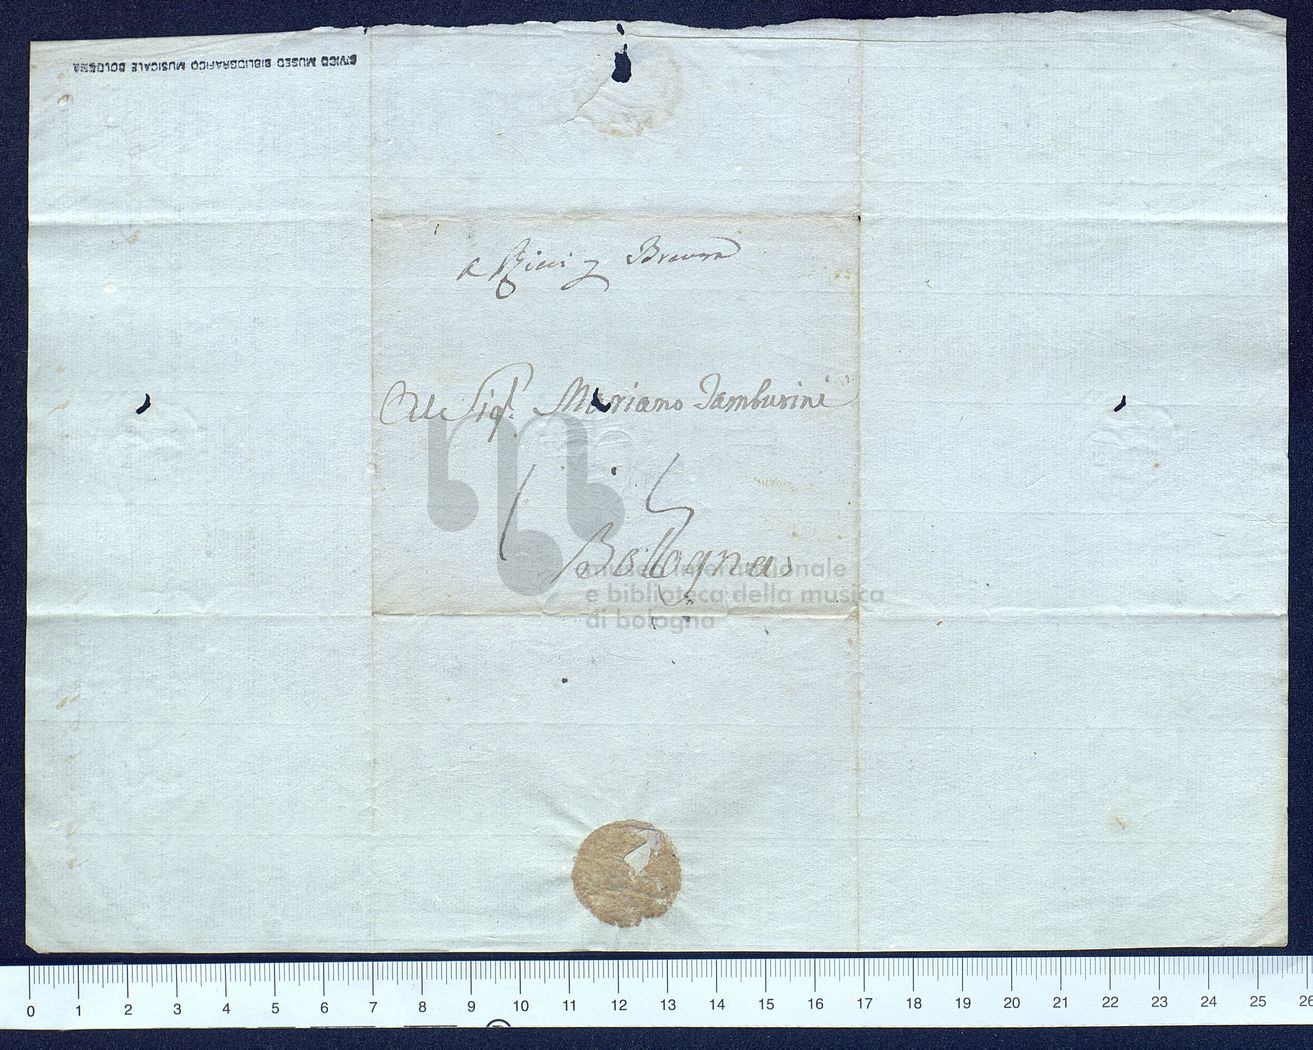 CIVICO MUSEO BIBLIOGRAFICO MUSICALE BOLOGNA
Al Sigr. Mariano Tamburini
Bologna
museo internazionale
e biblioteca della musica
di bologna
0 1 2 3 4 5 6 7 8 9 10 11 12 13 14 15 16 17 18 19 20 21 22 23 24 25 26